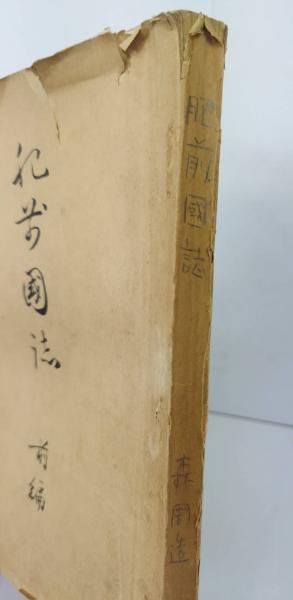 肥前國誌
前編
肥前國誌
森周造